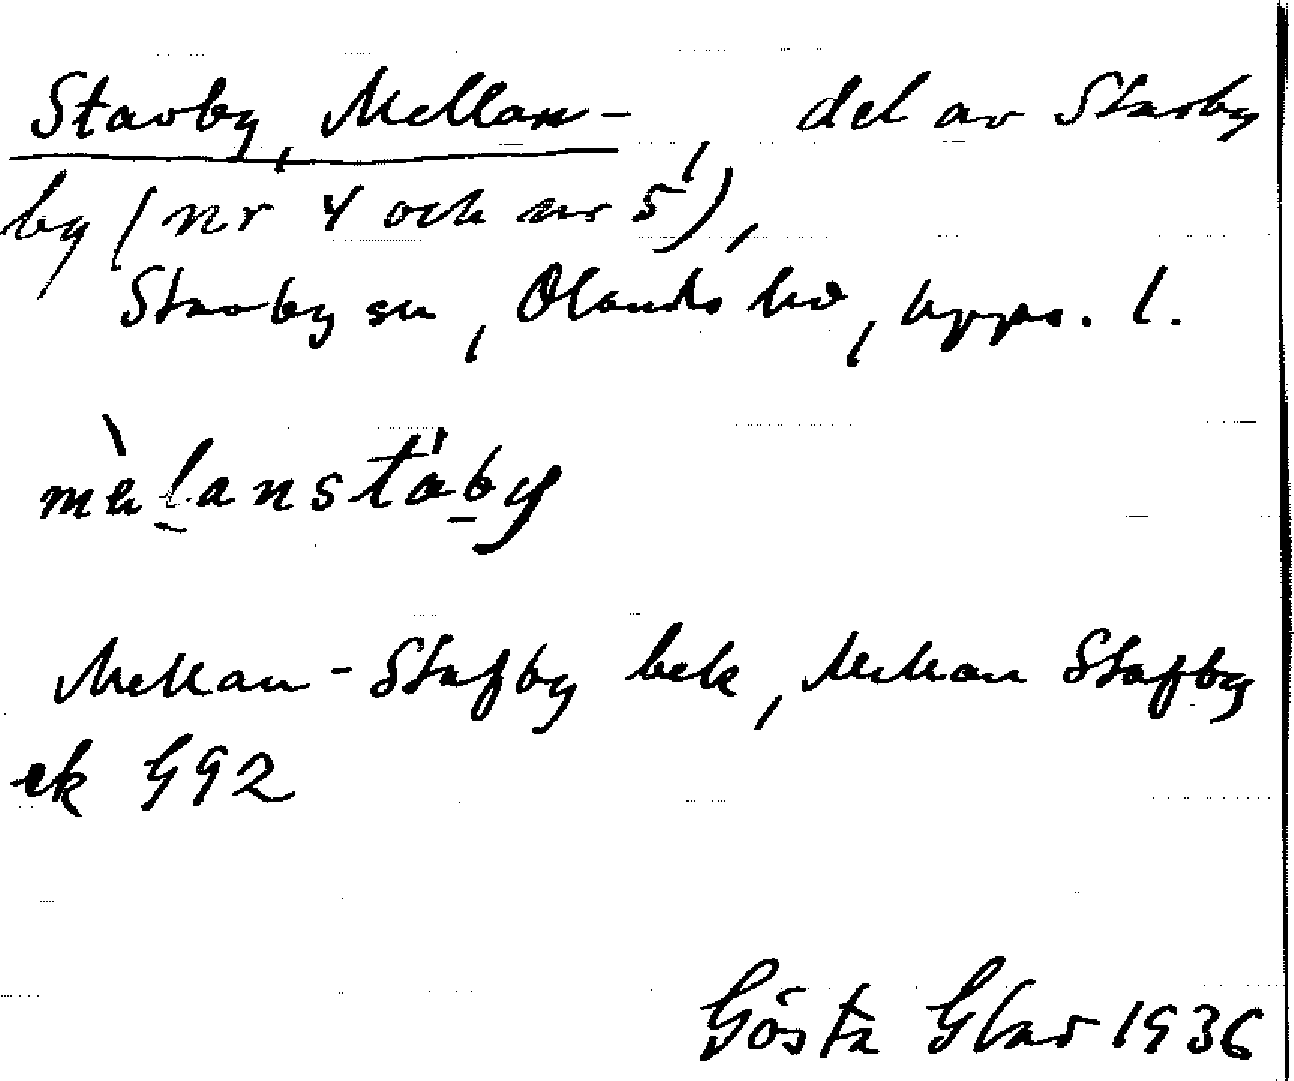 Stavby, Mellan-, del av Stavby
by (nr 4 och nr 5),
Stavby sn, Olands hd, Upps. l.
mèlanstáby
Mellan-Stafby bek, Mellan Stafby
ek G92
Gösta Glar 1936